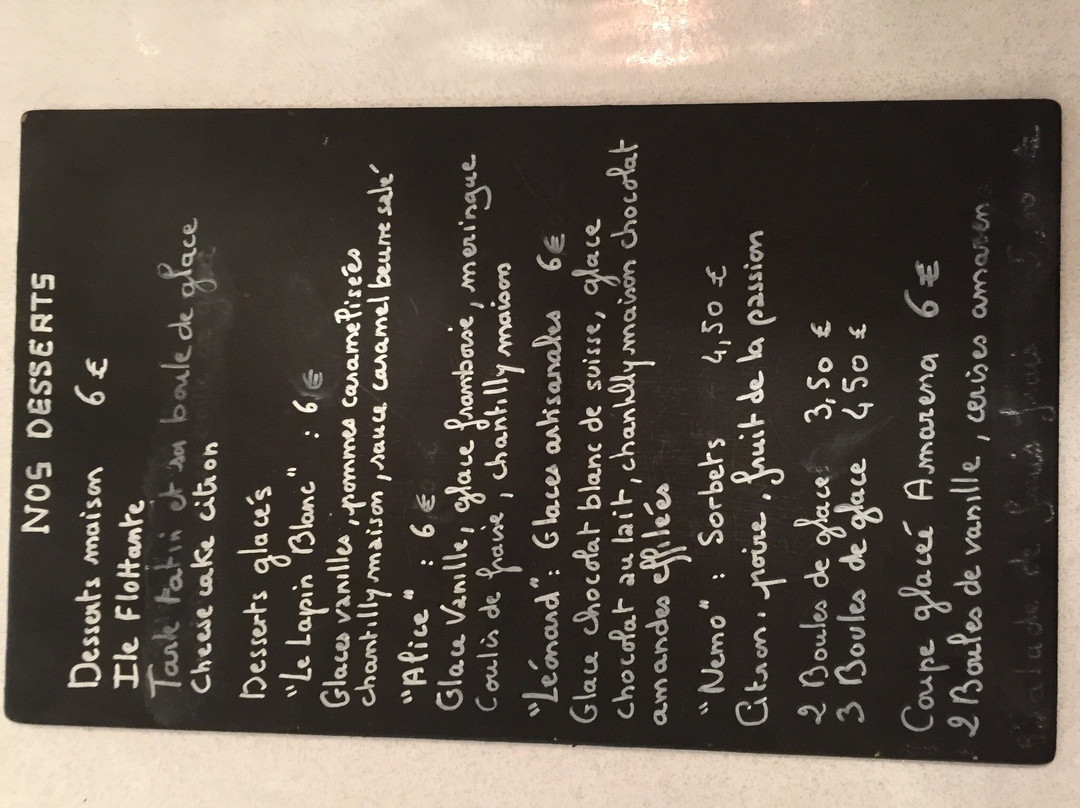 NOS DESSERTS
Desserts maison 6 €
Ile Flottante
Tarte tatin et sa boule de glace
Cheesecake citron
Desserts glacés
"Le Lapin Blanc" : 6 €
Glaces vanilles, pommes caramélisées
chantilly maison, sauce caramel beurre salé
"Alice" : 6 €
Glace Vanille, glace framboise, meringue
Coulis de fraise, chantilly maison
"Léonard" : Glaces artisanales 6 €
Glace chocolat blanc de suisse, glace
chocolat au lait, chantilly maison chocolat
amandes effilées
"Nemo" : Sorbets 4,50 €
Citron, poire, fruit de la passion
2 Boules de glace 3,50 €
3 Boules de glace 4 50 €
Coupe glacée Amarena 6 €
2 Boules de vanille, cerises amaren